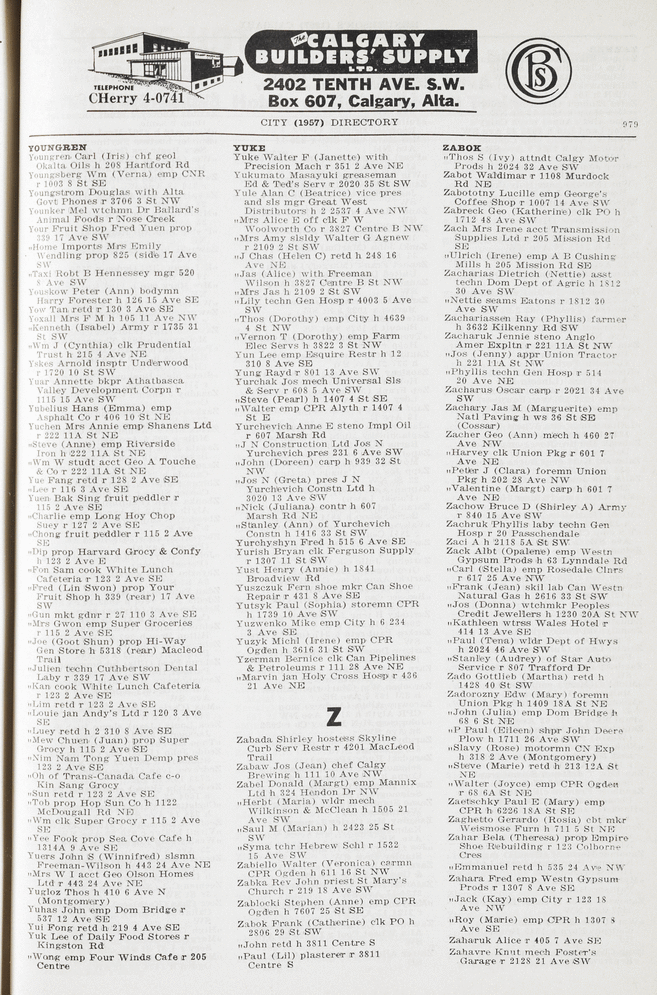 The CALGARY
BUILDERS' SUPPLY
LTD.
2402 TENTH AVE. S.W.
Box 607, Calgary, Alta.
TELEPHONE
CHerry 4-0741
CBS
CITY (1957) DIRECTORY
979
YOUNGREN
Youngren Carl (Iris) chf geol
Okalta Oils h 208 Hartford Rd
Youngsberg Wm (Verna) emp CNR
r 1003 8 St SE
Youngstrom Douglas with Alta
Govt Phones r 3706 3 St NW
Younker Mel wtchmn Dr Ballard's
Animal Foods r Nose Creek
Your Fruit Shop Fred Yuen prop
339 17 Ave SW
"Home Imports Mrs Emily
Wendling prop 825 (side 17 Ave
SW
"Taxi Robt B Hennessey mgr 520
8 Ave SW
Youskow Peter (Ann) bodymn
Harry Forester h 126 15 Ave SE
Yow Tan retd r 130 3 Ave SE
Yoxall Mrs F M h 105 11 Ave NW
"Kenneth (Isabel) Army r 1735 31
St SW
"Wm J (Cynthia) clk Prudential
Trust h 215 4 Ave NE
Yskes Arnold insptr Underwood
r 1720 10 St SW
Yuar Annette bkpr Athatbasca
Valley Development Corpn r
1115 15 Ave SW
Yubelius Hans (Emma) emp
Asphalt Co r 406 10 St NE
Yuchen Mrs Annie emp Shanens Ltd
r 222 11A St NE
"Steve (Anne) emp Riverside
Iron h 222 11A St NE
"Wm W studt acct Geo A Touche
& Co r 222 11A St NE
Yue Fang retd r 128 2 Ave SE
"Lee r 116 3 Ave SE
Yuen Bak Sing fruit peddler r
115 2 Ave SE
"Charlie emp Long Hoy Chop
Suey r 127 2 Ave SE
"Chong fruit peddler r 115 2 Ave
SE
"Dip prop Harvard Grocy & Confy
h 123 2 Ave E
"Fon Sam cook White Lunch
Cafeteria r 123 2 Ave SE
"Fred (Lin Swon) prop Your
Fruit Shop h 339 (rear) 17 Ave
SW
"Gun mkt gdnr r 27 110 3 Ave SE
"Mrs Gwon emp Super Groceries
r 115 2 Ave SE
"Joe (Goot Shun) prop Hi-Way
Gen Store h 5318 (rear) Macleod
Trail
"Julien techn Cuthbertson Dental
Laby r 339 17 Ave SW
"Kan cook White Lunch Cafeteria
r 123 2 Ave SE
"Lim retd r 123 2 Ave SE
"Louie jan Andy's Ltd r 120 3 Ave
SE
"Luey retd h 2 310 8 Ave SE
"Mew Chuen (Juan) prop Super
Grocy h 115 2 Ave SE
"Nim Nam Tong Yuen Demp pres
123 2 Ave SE
"Oh of Trans-Canada Cafe c-o
Kin Sang Grocy
"Sun retd r 123 2 Ave SE
"Tob prop Hop Sun Co h 1122
McDougall Rd NE
"Wm clk Super Grocy r 115 2 Ave
SE
"Yee Fook prop Sea Cove Cafe h
1314A 9 Ave SE
Yuers John S (Winnifred) slsmn
Freeman-Wilson h 443 24 Ave NE
"Mrs W I acct Geo Olson Homes
Ltd r 443 24 Ave NE
Yugloz Thos h 410 6 Ave N
(Montgomery)
Yuhas John emp Dom Bridge r
537 12 Ave SW
Yui Fong retd h 219 4 Ave SE
Yuk Lee of Daily Food Stores r
Kingston Rd
"Wong emp Four Winds Cafe r 205
Centre
YUKE
Yuke Walter F (Janette) with
Precision Mach r 351 2 Ave NE
Yukumato Masayuki greaseman
Ed & Ted's Serv r 2020 35 St SW
Yule Alan C (Beatrice) vice pres
and sls mgr Great West
Distributors h 2 2537 4 Ave NW
"Mrs Alice E off clk F W
Woolworth Co r 3827 Centre B NW
"Mrs Amy slsldy Walter G Agnew
r 2109 2 St SW
"J Chas (Helen C) retd h 248 16
Ave NE
"Jas (Alice) with Freeman
Wilson h 3827 Centre B St NW
"Mrs Jas h 2109 2 St SW
"Lily techn Gen Hosp r 4003 5 Ave
SW
"Thos (Dorothy) emp City h 4639
4 St NW
"Vernon T (Dorothy) emp Farm
Elec Servs h 3822 3 St NW
Yun Lee emp Esquire Restr h 12
310 8 Ave SE
Yung Ray d r 801 13 Ave SW
Yurchak Jos mech Universal Sls
& Serv r 608 5 Ave SW
"Steve (Pearl) h 1407 4 St SE
"Walter emp CPR Alyth r 1407 4
St E
Yurchevich Anne E steno Impl Oil
r 607 Marsh Rd
"J N Construction Ltd Jos N
Yurchevich pres 231 6 Ave SW
"John (Doreen) carp h 939 32 St
NW
"Jos N (Greta) pres J N
Yurchevich Constn Ltd h
3020 13 Ave SW
"Nick (Juliana) contr h 607
Marsh Rd NE
"Stanley (Ann) of Yurchevich
Constn h 1416 33 St SW
Yurchyshyn Fred h 515 6 Ave SE
Yurish Bryan clk Ferguson Supply
r 1307 11 St SW
Yust Henry (Annie) h 1841
Broadview Rd
Yuszczuk Fern shoe mkr Can Shoe
Repair r 431 8 Ave SE
Yutsyk Paul (Sophia) storemn CPR
h 1739 10 Ave SW
Yuzwenko Mike emp City h 6 234
3 Ave SE
Yuzyk Michl (Irene) emp CPR
Ogden h 3616 31 St SW
Yzerman Bernice clk Can Pipelines
& Petroleums r 111 28 Ave NE
"Marvin jan Holy Cross Hosp r 436
21 Ave NE
Z
Zabada Shirley hostess Skyline
Curb Serv Restr r 4201 MacLeod
Trail
Zabaw Jos (Jean) chef Calgy
Brewing h 111 10 Ave NW
Zabel Donald (Margt) emp Mannix
Ltd h 324 Hendon Dr NW
"Herbt (Maria) wldr mech
Wilkinson & McClean h 1505 21
Ave SW
"Saul M (Marian) h 2423 25 St
SW
"Syma tchr Hebrew Schl r 1532
15 Ave SW
Zabiello Walter (Veronica) carmn
CPR Ogden h 611 16 St NW
Zabka Rev John priest St Mary's
Church r 219 18 Ave SW
Zablocki Stephen (Anne) emp CPR
Ogden h 7607 25 St SE
Zabok Frank (Catherine) clk PO h
2806 29 St SW
"John retd h 3811 Centre S
"Paul (Lil) plasterer r 3811
Centre S
ZABOK
"Thos S (Ivy) attndt Calgy Motor
Prods h 2024 32 Ave SW
Zabot Waldimar r 1108 Murdock
Rd NE
Zabototny Lucille emp George's
Coffee Shop r 1007 14 Ave SW
Zabreck Geo (Katherine) clk PO h
1712 48 Ave SW
Zach Mrs Irene acct Transmission
Supplies Ltd r 205 Mission Rd
SE
"Ulrich (Irene) emp A B Cushing
Mills h 205 Mission Rd SE
Zacharias Dietrich (Nettie) asst
techn Dom Dept of Agric h 1812
30 Ave SW
"Nettie seams Eatons r 1812 30
Ave SW
Zachariassen Ray (Phyllis) farmer
h 3632 Kilkenny Rd SW
Zacharuk Jennie steno Anglo
Amer Expltn r 221 11A St NW
"Jos (Jenny) appr Union Tractor
h 221 11A St NW
"Phyllis techn Gen Hosp r 514
20 Ave NE
Zacharus Oscar carp r 2021 34 Ave
SW
Zachary Jas M (Marguerite) emp
Natl Paving h ws 36 St SE
(Cossar)
Zacher Geo (Ann) mech h 460 27
Ave NW
"Harvey clk Union Pkg r 601 7
Ave NE
"Peter J (Clara) foremn Union
Pkg h 202 28 Ave NW
"Valentine (Margt) carp h 601 7
Ave NE
Zachow Bruce D (Shirley A) Army
r 840 15 Ave SW
Zachruk Phyllis laby techn Gen
Hosp r 20 Passchendale
Zaci A h 2118 5A St SW
Zack Albt (Opalene) emp Westn
Gypsum Prods h 63 Lynndale Rd
"Carl (Stella) emp Rosedale Clnrs
r 617 25 Ave NW
"Frank (Jean) skil lab Can Westn
Natural Gas h 2616 33 St SW
"Jos (Donna) wtchmkr Peoples
Credit Jewellers h 1230 20A St NW
"Kathleen wtrss Wales Hotel r
414 13 Ave SE
"Paul (Tena) wldr Dept of Hwys
h 2024 46 Ave SW
"Stanley (Audrey) of Star Auto
Service r 807 Trafford Dr
Zado Gottlieb (Martha) retd h
1428 40 St SW
Zadorozny Edw (Mary) foremn
Union Pkg h 1409 18A St NW
"John (Julia) emp Dom Bridge h
68 6 St NE
"P Paul (Eileen) shpr John Deere
Plow h 1711 26 Ave SW
"Slavy (Rose) motormn CN Exp
h 318 2 Ave (Montgomery)
"Steve (Marie) retd h 213 12A St
NE
"Walter (Joyce) emp CPR Ogden
r 68 6A St NE
Zaetschky Paul E (Mary) emp
CPR h 6226 18A St SE
Zaghetto Gerardo (Rosia) cbt mkr
Weismose Furn h 711 5 St NE
Zahar Bela (Theresa) prop Empire
Shoe Rebuilding r 123 Colborne
Cres
"Emmanuel retd h 535 24 Ave NW
Zahara Fred emp Westn Gypsum
Prods r 1307 8 Ave SE
"Jack (Kay) emp City r 123 18
Ave NW
"Roy (Marie) emp CPR h 1307 8
Ave SE
Zaharuk Alice r 405 7 Ave SE
Zahavre Knut mech Foster's
Garage r 2128 21 Ave SW